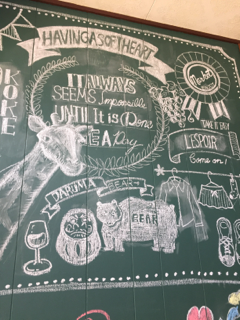 HAVING A SOFT HEART
KOKE
IT ALWAYS
SEEMS Impossible
UNTIL It is Done
EA Day
TAKE IT EASY
L'ESPOIR
Come on!
DARUMA
BEAR
BEAR